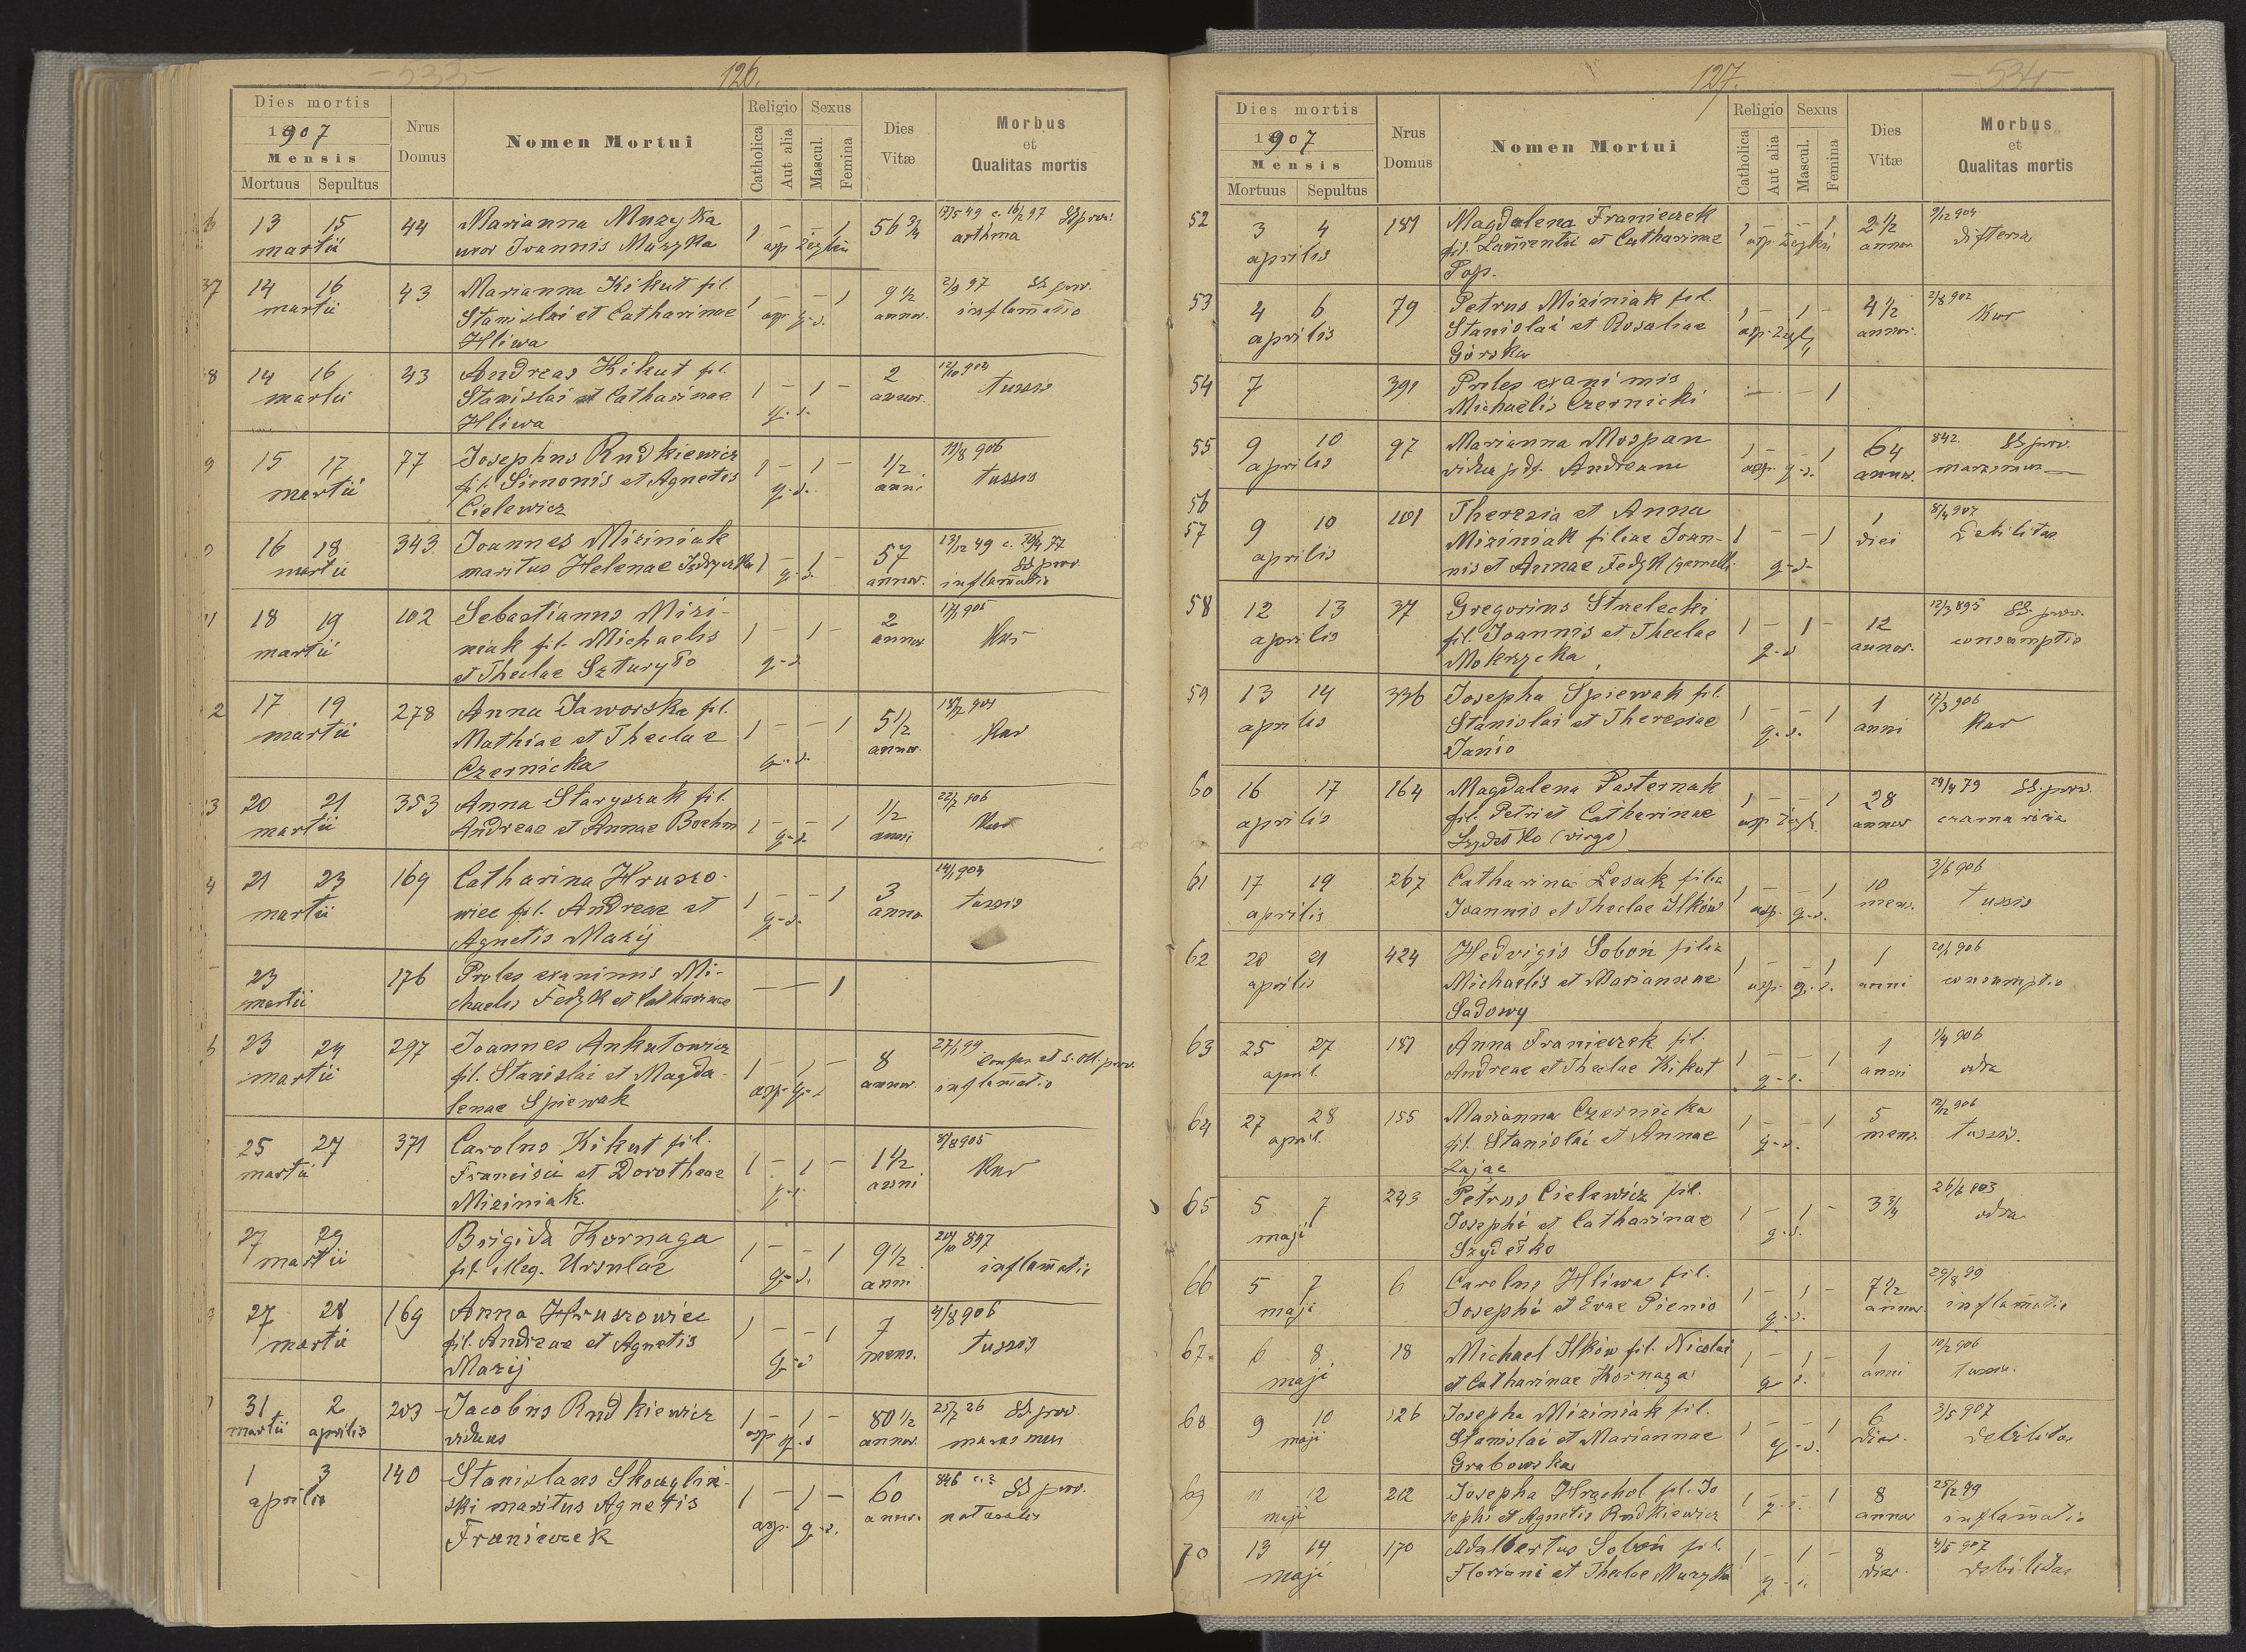 - 533 -
126.
Dies mortis
1907
Mensis
Mortuus Sepultus
Nrus Domus
Nomen Mortui
Religio
Catholica
Aut alia
Sexus
Mascul.
Femina
Dies Vitæ
Morbus
et
Qualitas mortis
6 13 15 44 Marianna Muzyka 1 – – 1 56 3/4 17/5 49 c. 16/2 97 SS prov.
martii uxor Joannis Muzyka asp asthma
37 14 16 43 Marianna Kikut fil. 1 – – 1 9 1/2 2/9 97 SS prov.
martii Stanislai et Catharinae asp g.s. annor. inflam̄atio
Hliwa
8 14 16 43 Andreas Kikut fil. 2 12/10 904
martii Stanislai et Catharinae 1 – 1 – annor. tussis
Hliwa g.s.
9 15 17 77 Josephus Rudkiewicz 1 – 1 – 1/2 11/8 906
martii fil. Simonis et Agnetis g.s. anni tussis
Cielewicz
0 16 18 343 Joannes Miziniak 57 13/12 49
martii maritus Helenae 1 – 1 g.s. annor. inflam̄atio SS prov.
41 18 19 102 Sebastianus Mizi- 2 17/1 905
martii niak fil. Michaelis 1 – 1 – annor. Kur
et Theclae Szturyło g-s
2 17 19 278 Anna Jaworska fil. 5 1/2 904
martii Mathiae et Theclae 1 – – 1 annor. Kur
Czernicka g.s.
3 20 21 353 Anna Staryszak fil. 1/2 22/7 906
martii Andreae et Annae Boehm 1 – – 1 g-s. anni Kur
4 21 23 169 Catharina Hruszo- 1 – – 1 3 14/1 904
martii wiec fil. Andreae et g-s. anno tussis
Agnetis Mazij
23 176 Proles exanimis Mi- – – 1
martii chaelis Fedyk et Catharinae
6 23 24 297 Joannes Ankutowicz 27/1 99
martii fil. Stanislai et Magda- 1 1 – 8 confes et s. ol. prov.
lenae Spiewak asp g-s annor. inflam̄atio
25 27 371 Carolus Kikut fil. 8/8 905
martii Francisci et Dorotheae 1 – 1 – 1 1/2 Kur
Miziniak g.s. anni
27 29 Brigida Kornaga 1 – – 1 9 1/2 20/10 897
martii fil. illeg. Ursulae g-s. anni inflam̄atio
27 28 169 Anna Hruszowiec 7 4/8 906
martii fil. Andreae et Agnetis 1 – – 1 mens. tussis
Mazij g-s
31 2 203 Jacobus Rudkiewicz 1 – 1 – 80 1/2 25/7 26 SS prov.
martii aprilis viduus asp g.s annor. marasmus
1 3 140 Stanislaus Skowylin- 60 846 SS prov.
aprilis ski maritus Agnetis 1 – 1 – annor.
Franiewek asp. g.s.
127.
- 534 -
Dies mortis
1907
Mensis
Mortuus Sepultus
Nrus Domus
Nomen Mortui
Religio
Catholica
Aut alia
Sexus
Mascul.
Femina
Dies Vitæ
Morbus
et
Qualitas mortis
52 3 4 189 Magdalena Franieczek 1 – – 1 2 1/2 9/12 904
aprilis fil. Laurentii et Catharinae asp annor. difteria
Pap.
53 4 6 79 Petrus Miziniak fil. 1 – 1 – 4 1/2 2/8 902
aprilis Stanislai et Rosaliae asp. annor. Kur
Górska
54 7 391 Proles exanimis – – 1
Michaelis Czernicki
55 9 10 97 Marianna Mospan 1 – – 1 64 842. SS prov.
aprilis vidua pdf. Andreani asp. g-s. annor. marasmus
56 Theresia et Anna 1 8/4 907
57 9 10 101 Miziniak filiae Joan- 1 – – 1 diei Debilitas
aprilis nis et Annae Fedyk (gemelli g-s-
58 12 13 37 Gregorius Strzelecki 12/3 895 SS. prov.
aprilis fil. Joannis et Theclae 1 – 1 – 12 consumptio
Mokrzycka g-s annor.
59 13 14 336 Josepha Spiewak fil. 1 17/3 906
aprilis Stanislai et Theresiae 1 – – 1 anni Kur
Janio g.s.
60 16 17 164 Magdalena Pasternak 1 – – 1 28 29/4 79 SS. prov.
aprilis fil. Petri et Catharinae asp annor czarna
Szydełko (virgo)
61 17 19 267 Catharina Lesak filia 1 – – 1 10 3/6 906
aprilis Joannis et Theclae Ilków asp. g-s. mens. tussis
62 20 21 424 Hedvigis Soboń filia 1 – – 1 1 20/1 906
aprilis Michaelis et Mariannae asp. g.s. anni consumptio
Sadowy
63 25 27 189 Anna Franieczek fil. 1 1/4 906
april. Andreae et Theclae Kikut 1 – – 1 g-s. anni odra
64 27 28 155 Marianna Czernicka 1 – – 1 5 12/12 906
april. fil. Stanislai et Annae g-s. mens. tussis.
Zając
65 5 7 243 Petrus Cielewicz fil. 26/6 903
maji Josephi et Catharinae 1 – 1 – 3 3/4 odra
Szydełko g.s.
66 5 7 6 Carolus Hliwa fil. 1 – 1 – 7 1/2 29/8 99
maji Josephi et Evae Pienio g.s. annor. inflam̄atio
67. 6 8 18 Michael Ilków fil. Nicolai 1 – 1 – 1 10/2 906
maji et Catharinae Kornaga g s. anni tussis.
68 9 10 126 Josepha Miziniak fil. 6 3/5 907
maji Stanislai et Mariannae 1 – – 1 dier. debilitas
Grabowska g-s.
69 11 12 212 Josepha Hrachol fil. Jo 1 – – 1 8 25/2 99
maji sephi et Agnetis Rudkiewicz annor inflam̄atio
70 13 14 170 Adalbertus Soboń fil. 1 – 1 – 8 4/5 907
maji Floriani et Theclae Muzyka dier. debilitas